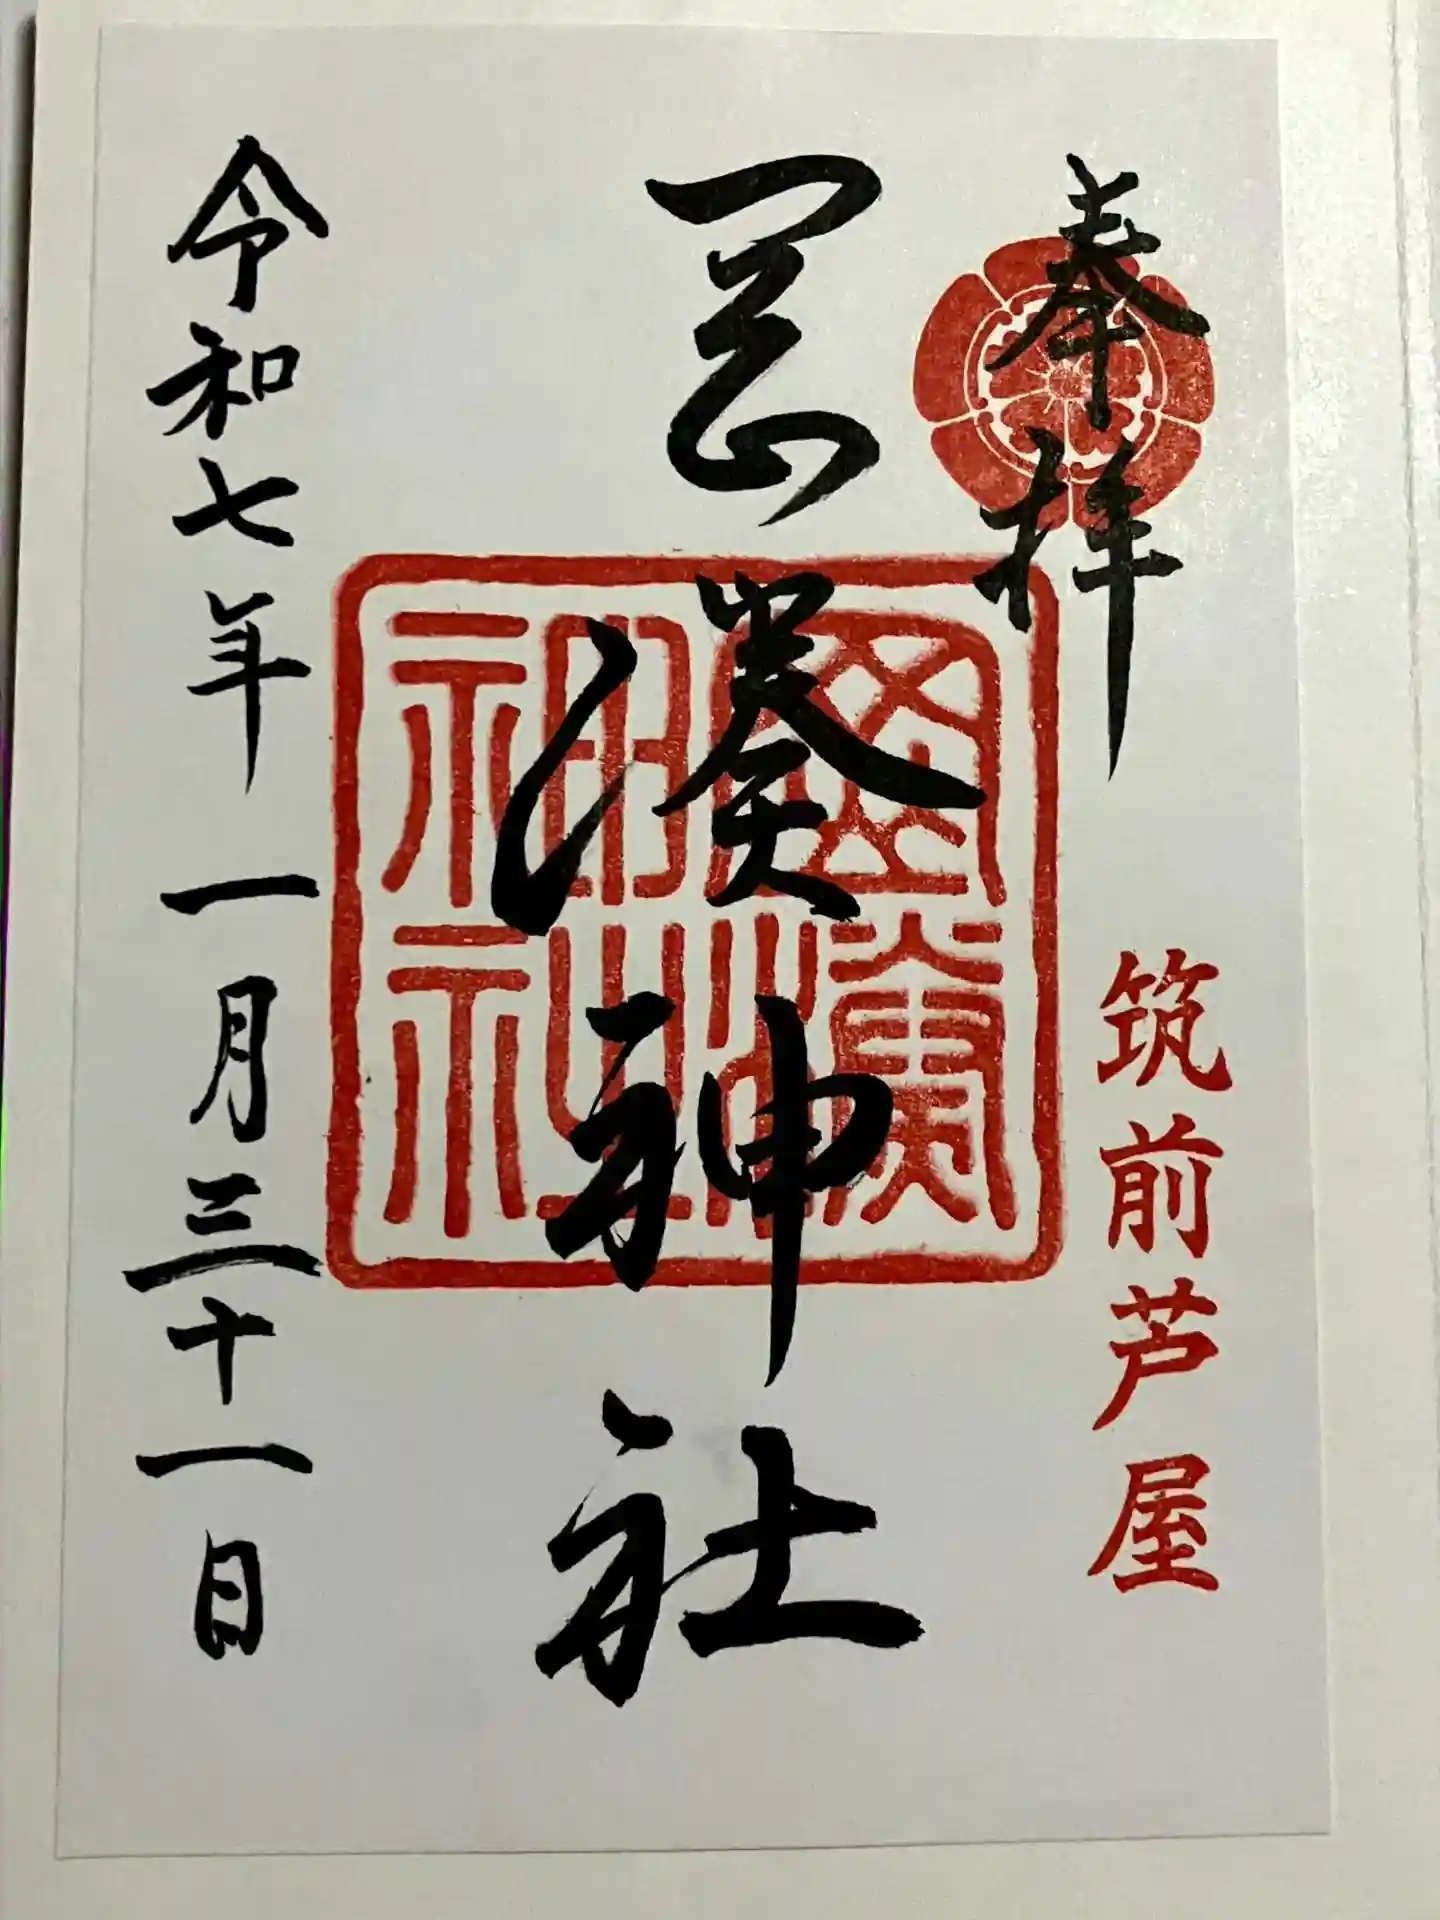 奉拝
筑前芦屋
岡湊神社
岡湊神社
令和七年一月三十一日